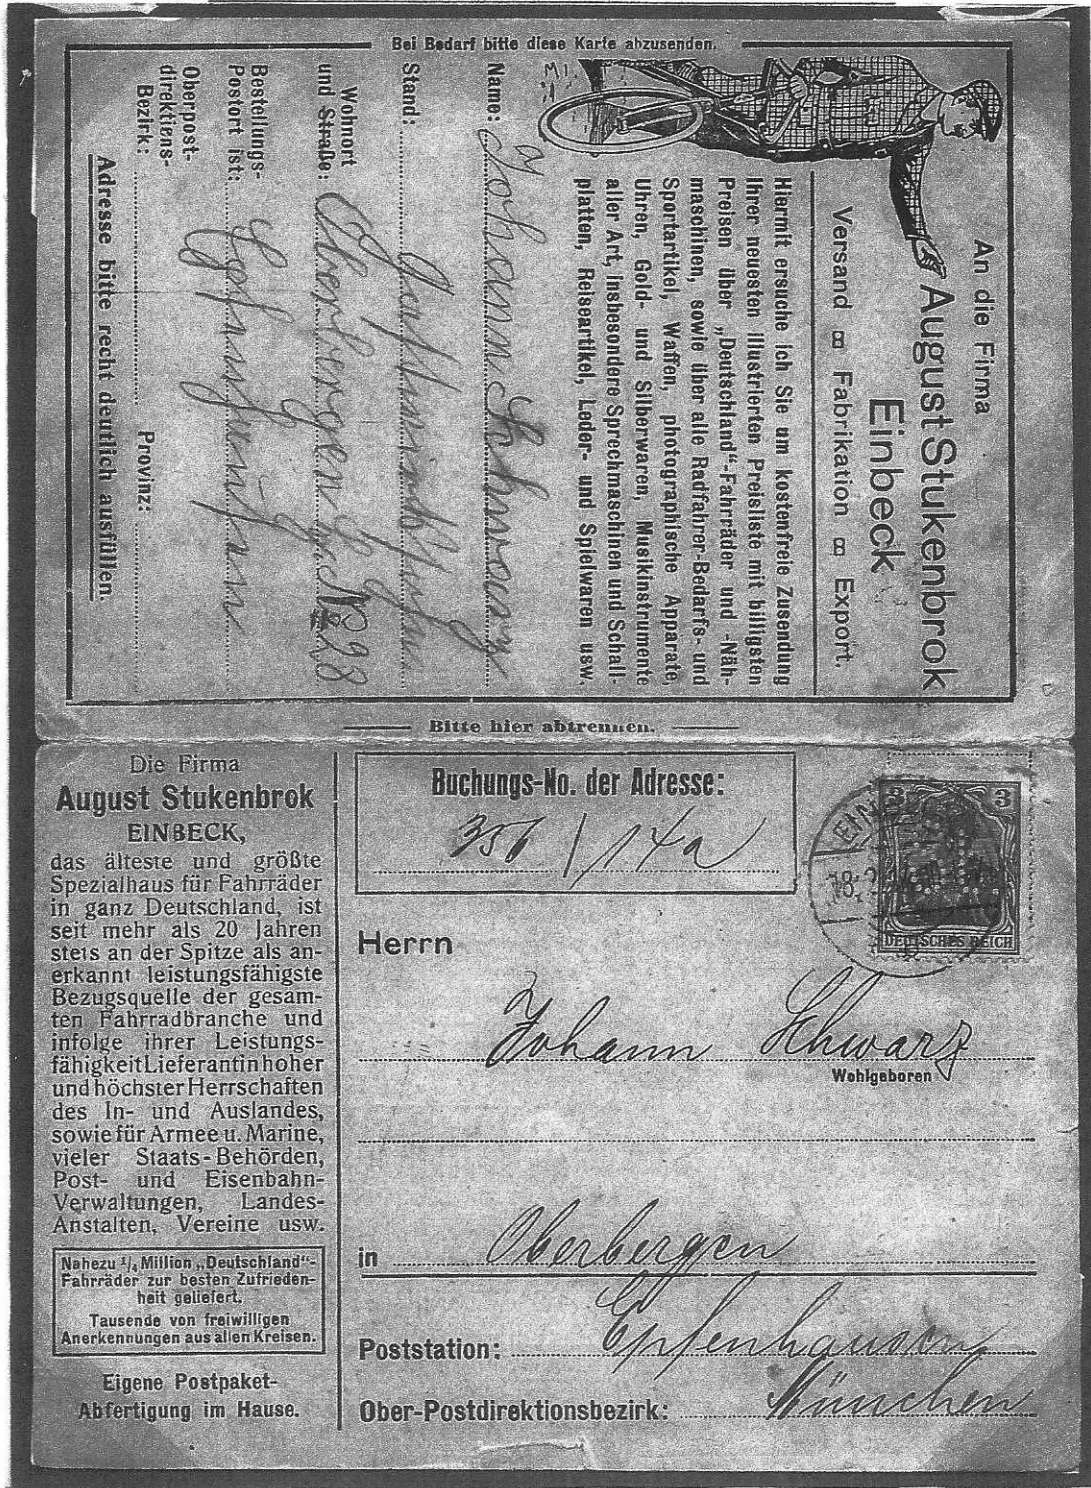 Bei Bedarf bitte diese Karte abzusenden.
An die Firma
August Stukenbrok
Einbeck
Versand ¤ Fabrikation ¤ Export.
Hiermit ersuche ich Sie um kostenfreie Zusendung
Ihrer neuesten illustrierten Preisliste mit billigsten
Preisen über „Deutschland"-Fahrräder und -Näh-
maschinen, sowie über alle Radfahrer-Bedarfs- und
Sportartikel, Waffen, photographische Apparate,
Uhren, Gold- und Silberwaren, Musikinstrumente
aller Art, insbesondere Sprechmaschinen und Schall-
platten, Reiseartikel, Leder- und Spielwaren usw.
Name: Johann Schwarz
Stand:
Wohnort
und Straße: Oberbergen Hs No 28
Bestellungs-
Postort ist: Epfenhausen
Oberpost-
direktions-
Bezirk:
Provinz:
Adresse bitte recht deutlich ausfüllen.
Bitte hier abtrennen.
Die Firma
August Stukenbrok
EINBECK,
das älteste und größte
Spezialhaus für Fahrräder
in ganz Deutschland, ist
seit mehr als 20 Jahren
stets an der Spitze als an-
erkannt leistungsfähigste
Bezugsquelle der gesam-
ten Fahrradbranche und
infolge ihrer Leistungs-
fähigkeit Lieferantin hoher
und höchster Herrschaften
des In- und Auslandes,
sowie für Armee u. Marine,
vieler Staats-Behörden,
Post- und Eisenbahn-
Verwaltungen, Landes-
Anstalten, Vereine usw.
Nahezu ¼ Million „Deutschland"-
Fahrräder zur besten Zufrieden-
heit geliefert.
Tausende von freiwilligen
Anerkennungen aus allen Kreisen.
Eigene Postpaket-
Abfertigung im Hause.
Buchungs-No. der Adresse:
356 / 14a
3 3
DEUTSCHES REICH
Herrn
Johann Schwarz
Wohlgeboren
in Oberbergen
Poststation: Epfenhausen
Ober-Postdirektionsbezirk: München